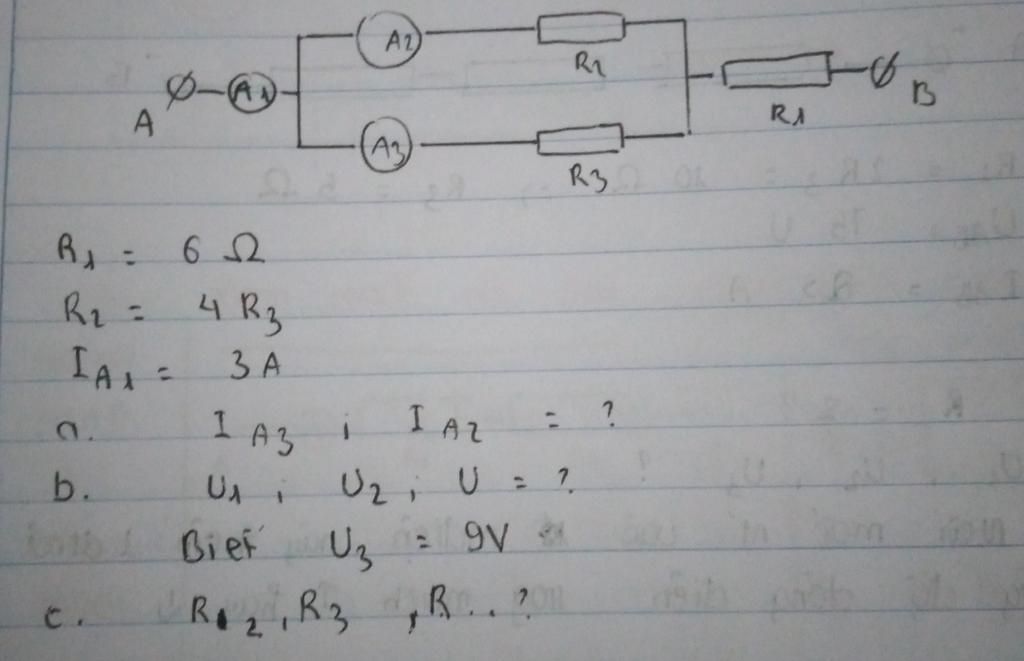 A2
R2
A A1 R1 B
A3
R3
R1 = 6 Ω
R2 = 4 R3
I A1 = 3 A
a. I A3 ; I A2 = ?
b. U1 ; U2 ; U = ?
Biết U3 = 9V
c. R2 , R3 , R.. ?